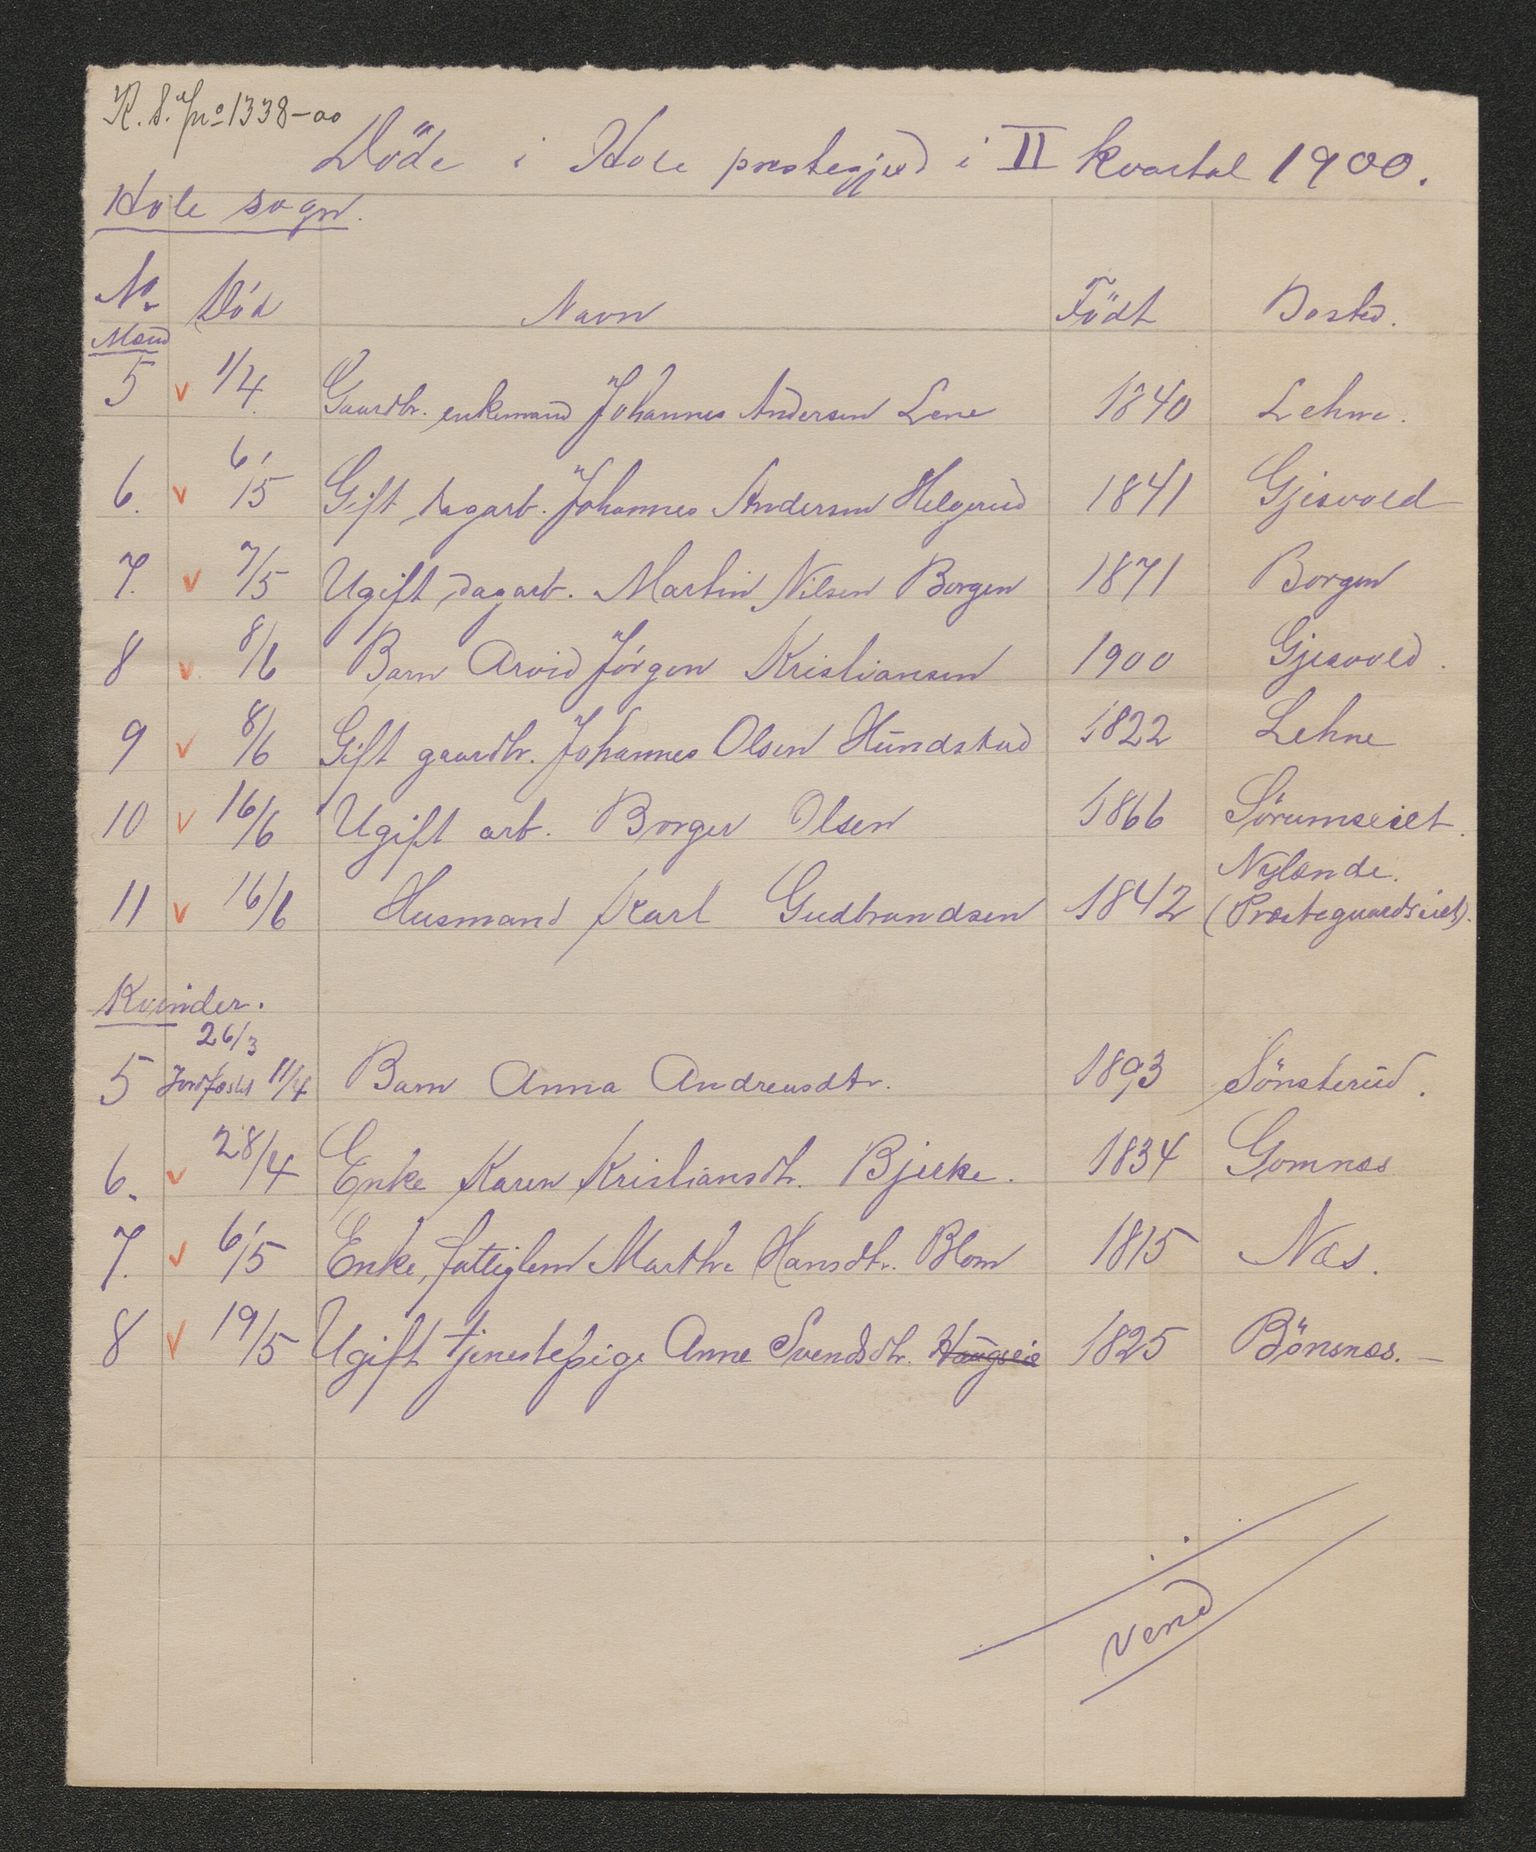 K. S. Jno 1338-00
Døde i Hole prestegjed i II kvartal 1900.
Hole sogn.
No Död Navn Födt Bosted.
Mænd
5 v 1/4 Gaardbr. enkemand Johannes Andersen Lene 1840 Lehne.
6. v 6/5 Gift dagarb. Johannes Andersen Helgerud 1841 Gjesvold
7. v 7/5 Ugift dagarb. Martin Nilsen Borgen 1871 Borgen
8 v 8/6 Barn Arvid Jörgen Kristiansen 1900 Gjesvold.
9 v 8/6 Gift gaardbr. Johannes Olsen Hundstad 1822 Lehne
10 v 16/6 Ugift arb. Borger Olsen 1866 Sörumseiet.
11 v 16/6 Husmand Karl Gudbrandsen 1842 Nylænde.
(Prestegaardseiet).
Kvinder.
26/3
5 Jordfæstet 11/4 Barn Anna Andreasdtr. 1893 Sönsterud.
6. v 28/4 Enke Karen Kristiansdtr. Bjerke. 1834 Gomnæs
7. v 6/5 Enke, fattiglem Marthe Hansdtr. Blom 1815 Næs.
8 v 19/5 Ugift tjenestepige Anne Svendsdtr. Haugseie 1825 Bönsnæs.—
Vend